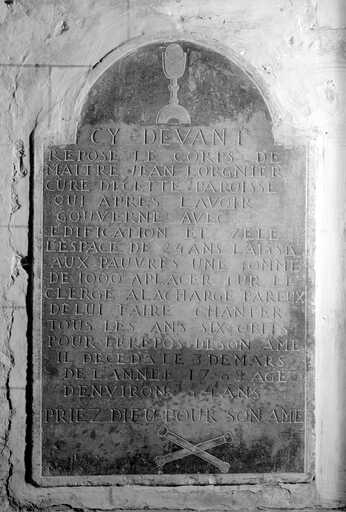 CY DEVANT
REPOSE LE CORPS DE
MAITRE JEAN LORGNIER
CURE DE CETTE PAROISSE
QUI APRES LAVOIR
GOUVERNE AVEC
EDIFICATION ET ZELE
LESPACE DE 24 ANS LAISSA
AUX PAUVRES UNE SOMME
DE 1000 APLACER SUR LE
CLERGE ALACHARGE PAREUX
DE LUI FAIRE CHANTER
TOUS LES ANS SIX OBITS
POUR LE REPOS DE SON AME
IL DECEDA LE 3 DE MARS
DE L'ANNEE AGE
D'ENVIRON ANS
PRIEZ DIEU POUR SON AME